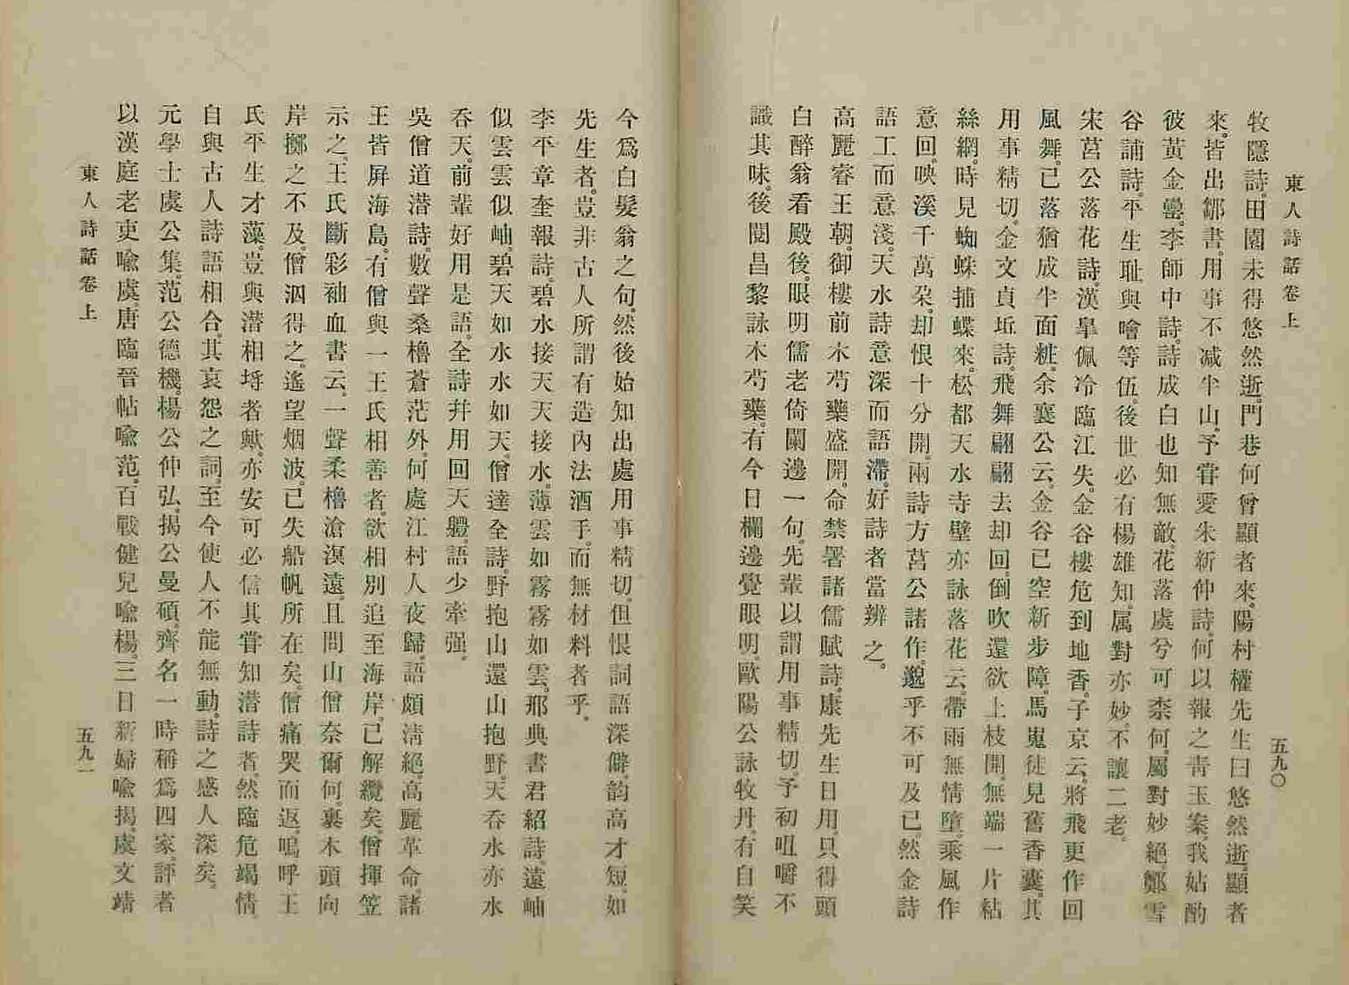 東人詩話卷上
五九〇
牧隱詩。田園未得悠然逝。門巷何曾顯者來。陽村權先生曰悠然逝。顯者
來。皆出鄒書。用事不減半山。予嘗愛朱新仲詩。何以報之靑玉案。我姑酌
彼黃金罍。李師中詩。詩成白也知無敵。花落虞兮可柰何。屬對妙絕。鄭雪
谷誧詩。平生耻與噲等伍。後世必有楊雄知。属對亦妙。不讓二老。
宋莒公落花詩。漢臯佩冷臨江失。金谷樓危到地香。子京云。將飛更作回
風舞。已落猶成半面粧。余襄公云。金谷已空新步障。馬嵬徒見舊香囊。其
用事精切。金文貞坵詩。飛舞翩翩去却回。倒吹還欲上枝開。無端一片粘
絲網。時見蜘蛛捕蝶來。松都天水寺壁亦詠落花云。帶雨無情墮。乘風作
意回。映溪千萬朶。却恨十分開。兩詩方莒公諸作。邈乎不可及已。然金詩
語工而意淺。天水詩意深而語滯。好詩者當辨之。
高麗睿王朝。御樓前木芍藥盛開。命禁署諸儒賦詩。康先生日用。只得頭
白醉翁看殿後。眼明儒老倚闌邊一句。先輩以謂用事精切。予初咀嚼不
識其味。後閱昌黎詠木芍藥。有今日欄邊覺眼明。歐陽公詠牧丹。有自笑
今爲白髮翁之句。然後始知出處用事精切。但恨詞語深僻。韵高才短。如
先生者。豈非古人所謂有造內法酒手。而無材料者乎。
李平章奎報詩。碧水接天天接水。薄雲如霧霧如雲。邢典書君紹詩。遠岫
似雲雲似岫。碧天如水水如天。僧達全詩。野抱山還山抱野。天吞水亦水
吞天。前輩好用是語。全詩幷用回天軆。語少牽强。
吳僧道潛詩。數聲桑櫓蒼茫外。何處江村人夜歸。語頗淸絕。高麗革命。諸
王皆屏海島。有僧與一王氏相善者。欲相別追至海岸。已解纜矣。僧揮笠
示之。王氏斷彩袖血書云。一聲柔櫓滄溟遠。且問山僧奈爾何。裹木頭向
岸擲之不及。僧泅得之。遙望烟波。已失船帆所在矣。僧痛哭而返。嗚呼王
氏平生才藻。豈與潛相埓者歟。亦安可必信其嘗知潛詩者。然臨危竭情。
自與古人詩語相合。其哀怨之詞。至今使人不能無動。詩之感人深矣。
元學士虞公集。范公德機。楊公仲弘。揭公曼碩。齊名一時稱爲四家。評者
以漢庭老吏喩虞。唐臨晉帖喩范。百戰健兒喩楊。三日新婦喩揭。虞文靖
東人詩話卷上
五九一